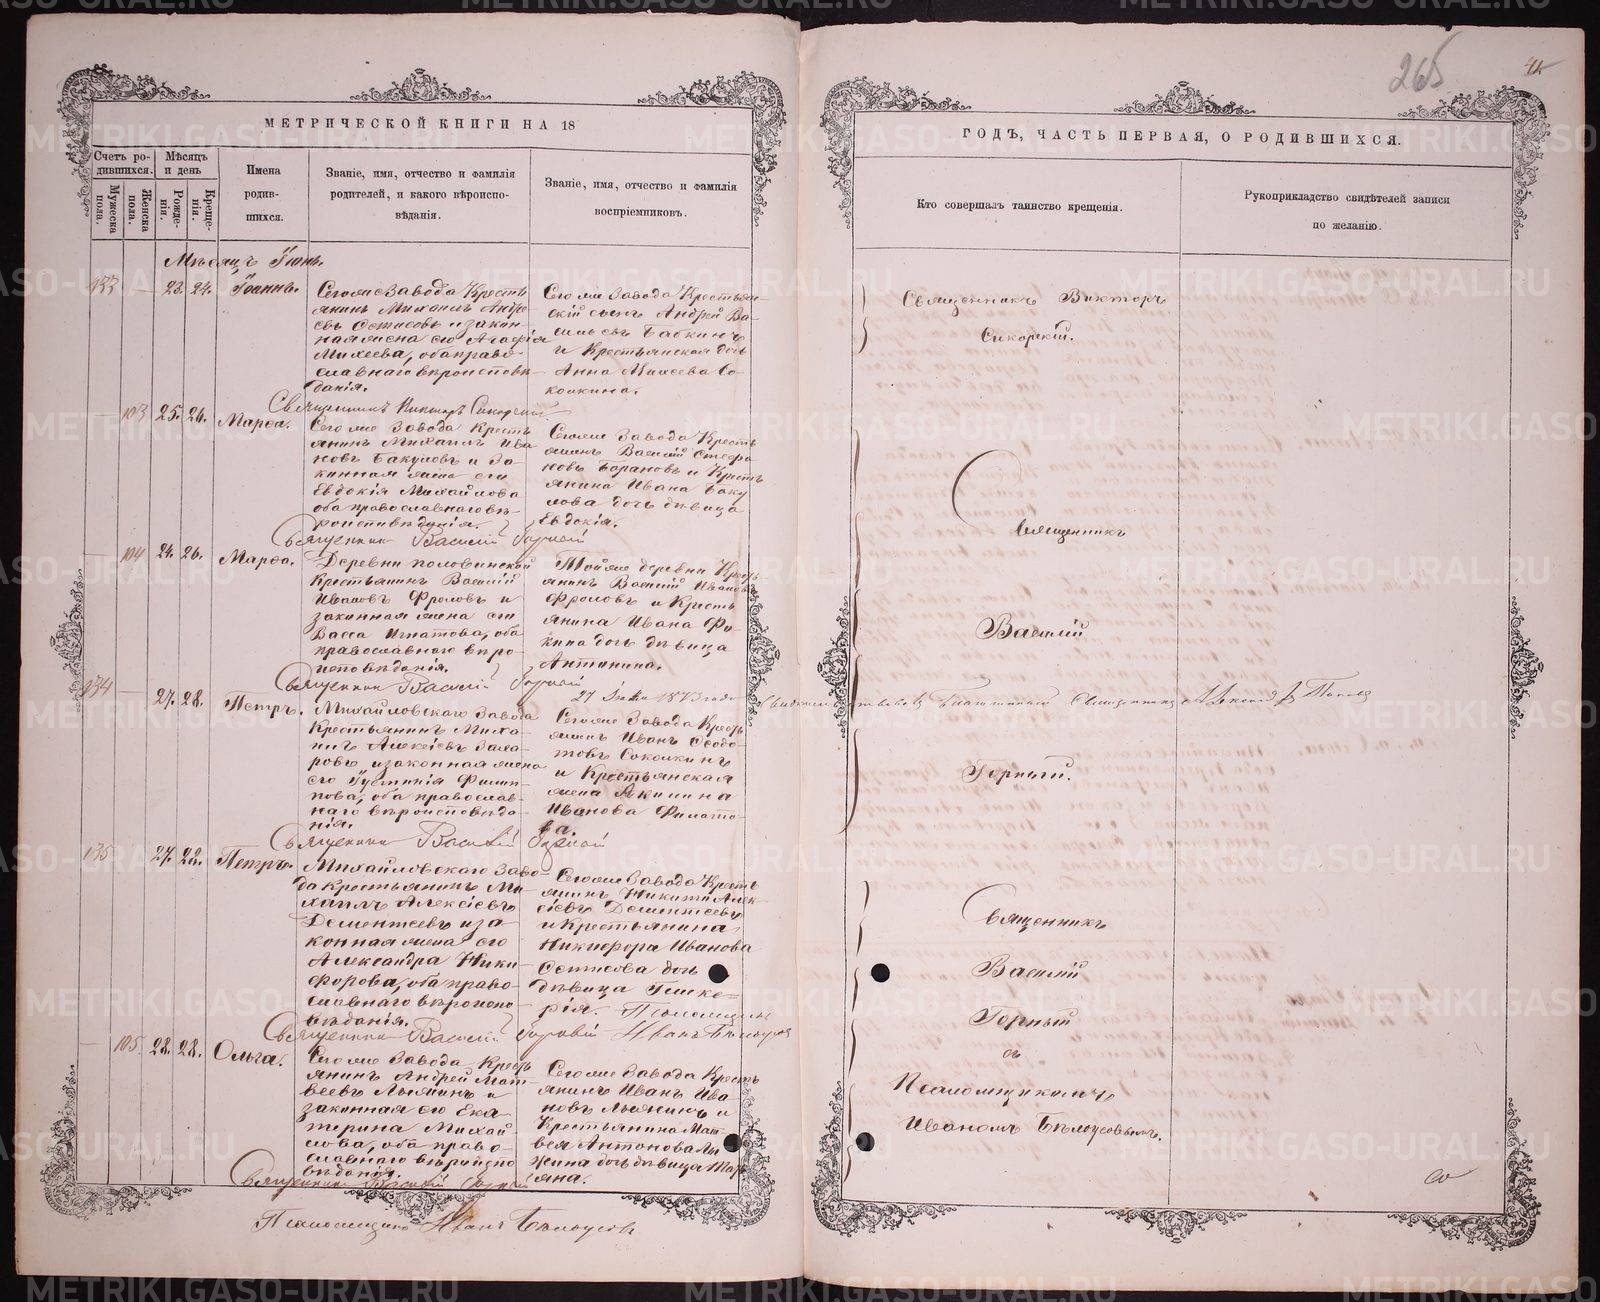 265
41
МЕТРИЧЕСКОЙ КНИГИ НА 18
ГОДЪ, ЧАСТЬ ПЕРВАЯ, О РОДИВШИХСЯ.
Счетъ ро-
дившихся.
Мужеска
пола.
Женска
пола.
Мѣсяцъ
и день
Рожде-
нія.
Креще-
нія.
Имена
родив-
шихся.
Званіе, имя, отчество и фамилія
родителей, и какого вѣроиспо-
вѣданія.
Званіе, имя, отчество и фамилія
воспріемниковъ.
Кто совершалъ таинство крещенія.
Рукоприкладство свидѣтелей записи
по желанію.
Мѣсяцъ Іюнь.
133 23. 24. Іоаннъ.
Сегоже Завода Кресть
янинъ Михаилъ Андре
евъ Сетисовъ и закон-
ная жена его Агафія
Михеева, оба право-
славнаго вѣроисповѣ
данія.
Сегоже Завода Крестьян-
скій сынъ Андрей Ва-
сильевъ Бабкинъ
и Крестьянская дочь
Анна Моисеева Со-
кожкина.
Священникъ Викторъ
Сикорскій.
Священникъ Викторъ Сикорскій
103 25. 26. Марѳа.
Сегоже Завода Кресть
янинъ Михаилъ Ива
новъ Бакуловъ и За-
конная жена его
Евдокія Михайлова
оба православнаго вѣ-
роисповѣданія.
Сегоже Завода Кресть
янинъ Василій Стефа
новъ Барановъ и Кресть
янина Ивана Баку
лова дочь дѣвица
Евдокія.
Священникъ Василій Горный
104 24. 26. Марѳа.
Деревни половинской
Крестьянинъ Василій
Ивановъ Фроловъ и
законная жена его
Васса Игнатова, оба
православнаго вѣро-
исповѣданія.
Тойже деревни Кресть
янинъ Василій Ивановъ
Фроловъ и Кресть
янина Ивана Фо-
кина дочь дѣвица
Антонина.
Священникъ
Василій
Горный.
Священникъ Василій Горный
134 27. 28. Петръ.
Михайловскаго Завода
Крестьянинъ Миха-
илъ Алексіевъ Заха-
ровъ и законная жена
его Іустинія Филип-
пова, оба православ-
наго вѣроисповѣда-
нія.
27 1873 года
Сегоже Завода Кресть
янинъ Иванъ Ѳеодо-
товъ Сокожкинъ
и Крестьянская
жена Акилина
Иванова Филато-
ва.
Священникъ Василій Горный
135 27. 28. Петръ.
Михайловскаго Заво
да Крестьянинъ Ми-
хаилъ Алексіевъ
Дементьевъ и за-
конная жена его
Александра Ники-
форова, оба право-
славнаго вѣроиспо-
вѣданія.
Сегоже Завода Кресть
янинъ Никита Алек-
сіевъ Дементьевъ
и Крестьянина
Никифора Иванова
Сетисова дочь
дѣвица Глике-
рія. Псаломщикъ
Иванъ Бѣлоусовъ
Священникъ Василій Горный
105. 28. 28. Ольга.
Сегоже Завода Кресть
янинъ Андрей Мат-
веевъ Лыжинъ и
законная его Ека
терина Михай-
лова, оба право-
славнаго вѣроиспо
вѣданія.
Сегоже Завода Кресть
янинъ Иванъ Ива-
новъ Лыжинъ и
Крестьянина Мат-
вея Антонова Лы-
жина дочь дѣвица Марі
яна.
Священникъ
Василій
Горный
съ
Псаломщикомъ
Иваномъ Бѣлоусовымъ.
Священникъ Василій Горный
Псаломщикъ Иванъ Бѣлоусовъ
METRIKI.GASO-URAL.RU